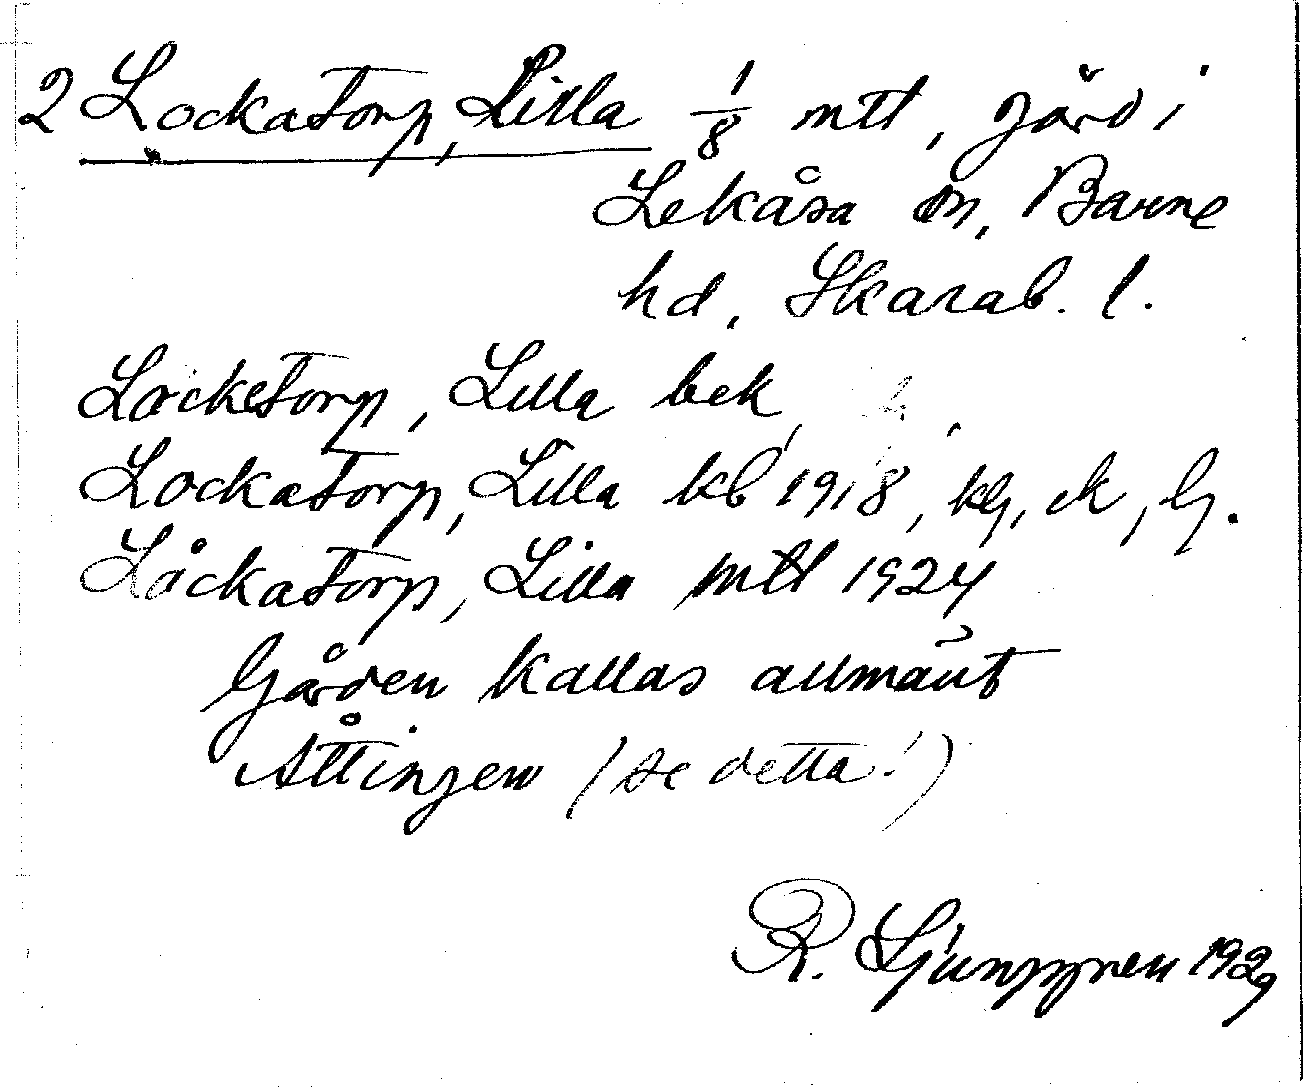 2 Lockatorp, Lilla 1/8 mtl, gård i
Lekåsa sn, Barne
hd, Skarab. l.
Locketorp, Lilla bek,
Lockatorp, Lilla kb 1918, kg, ek, lg.
Låckatorp, Lilla mtl 1924
Gården kallas allmänt
Åttingen (se detta!)
R. Ljunggren 1929